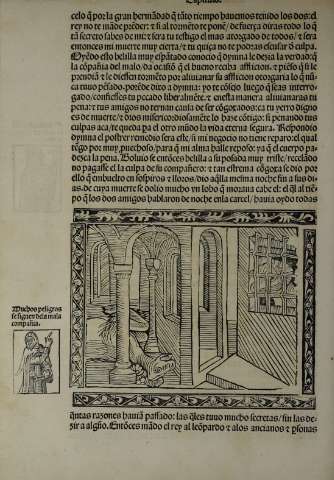 Capitulo.
celo q̃ por la gran hermãdad q̃ tãto tiempo hauemos tenido los dos: el
rey no te mãde prẽder: ⁊ si al tormẽto te pone/ de fuerça diras todo lo q̃
tã secreto sabes de mi: ⁊ sera tu testigo el mas atorgado de todos/ ⁊ sera
entonces mi muerte muy cierta/ ⁊ tu quiça no te podras escusar ð culpa.
Oyẽdo esto belilla muy espãtado conocio q̃ dymna le dezia la verdad: ⁊
la cõpañia del malo, da ocasiõ q̃ el bueno reciba affliccion. ⁊ pieso q̃ si le
prendiã ⁊ le diessen tormẽto por aliuianar su affliccion otorgaria lo q̃ nũ
ca tuuo pẽsado. porẽde dixo a dymna: yo te cõsejo luego q̃ seas interro
gado/ confiesses tu pecado liberalmẽte. ⁊ en esta manera aliuianaras tu
pena: ⁊ tus amigos no ternan causa de ser cõgoxados: ca tu yerro digno
es de muerte/ ⁊ õ dios misericordia: assi mesmo lo baxe cõtigo: si penando tus
culpas aca/ te queda pa el otro mũdo la vida eterna segura. Respondio
dymna el postrer remedio sera esse/ si mi negocio no tiene reparo: el qual
rẽgo por muy puechoso/ para q̃ mi alma halle reposo: ya q̃ el cuerpo pa
dezca la pena. Boluio se entõces belilla a su posada muy triste/ recelãdo
no pagasse el la culpa de su compañero: ⁊ tan estrema cõgoxa se dio por
ello q̃ embuelto en sospiros ⁊ lloros/ dio aq̃lla mesma noche fin a sus di
as. de cuya muerte se dolio mucho vn lobo q̃ moraua cabe el: el q̃l al tiẽ
po q̃ los dos amigos hablaron de noche en la carcel/ hauia oydo todas
Muchos peligros
se siguẽ dela mala
compañia.
q̃ntas razones hauiã passado: las q̃les tuuo mucho secretas/ sin las de
zir a algũo. Entõces mãdo el rey al leõpardo ⁊ alos ancianos ⁊ psonas